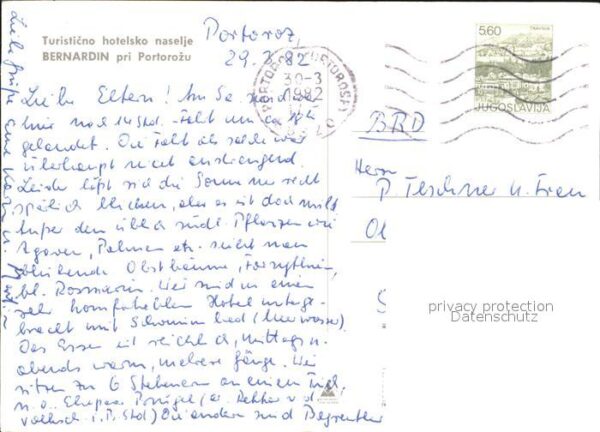 Turistično hotelsko naselje
BERNARDIN pri Portorožu
Portoroz,
29.3.82
30-3
1982
560
JUGOSLAVIJA
Liebe Eltern! Am Sa. sind wir
hier nach 12 Std. Fahrt um
gelandet. Die Fahrt als solche war
überhaupt nicht anstrengend.
Leider läßt sich die Sonne nur recht
spärlich blicken, aber es ist doch mild
Außer den üblich südl. Pflanzen wie
Agaven, Palmen etc. sieht man
blühende Obstbäume, Forsythien,
bl. Rosmarin. Wir sind in einem
sehr komfortablen Hotel unterge-
bracht mit Schwimmbad (Meerwasser)
Das Essen ist reichlich, mittags u.
abends warm, mehrere Gänge. Wir
sitzen zu 6 Steibenern an einem Tisch,
u.a. Ehepaar (er Rektor v. d.
i. P. Std) Die andern sind Begrenther
Liebe Grüße
BRD
Herrn
P. u. Frau
privacy protection
Datenschutz